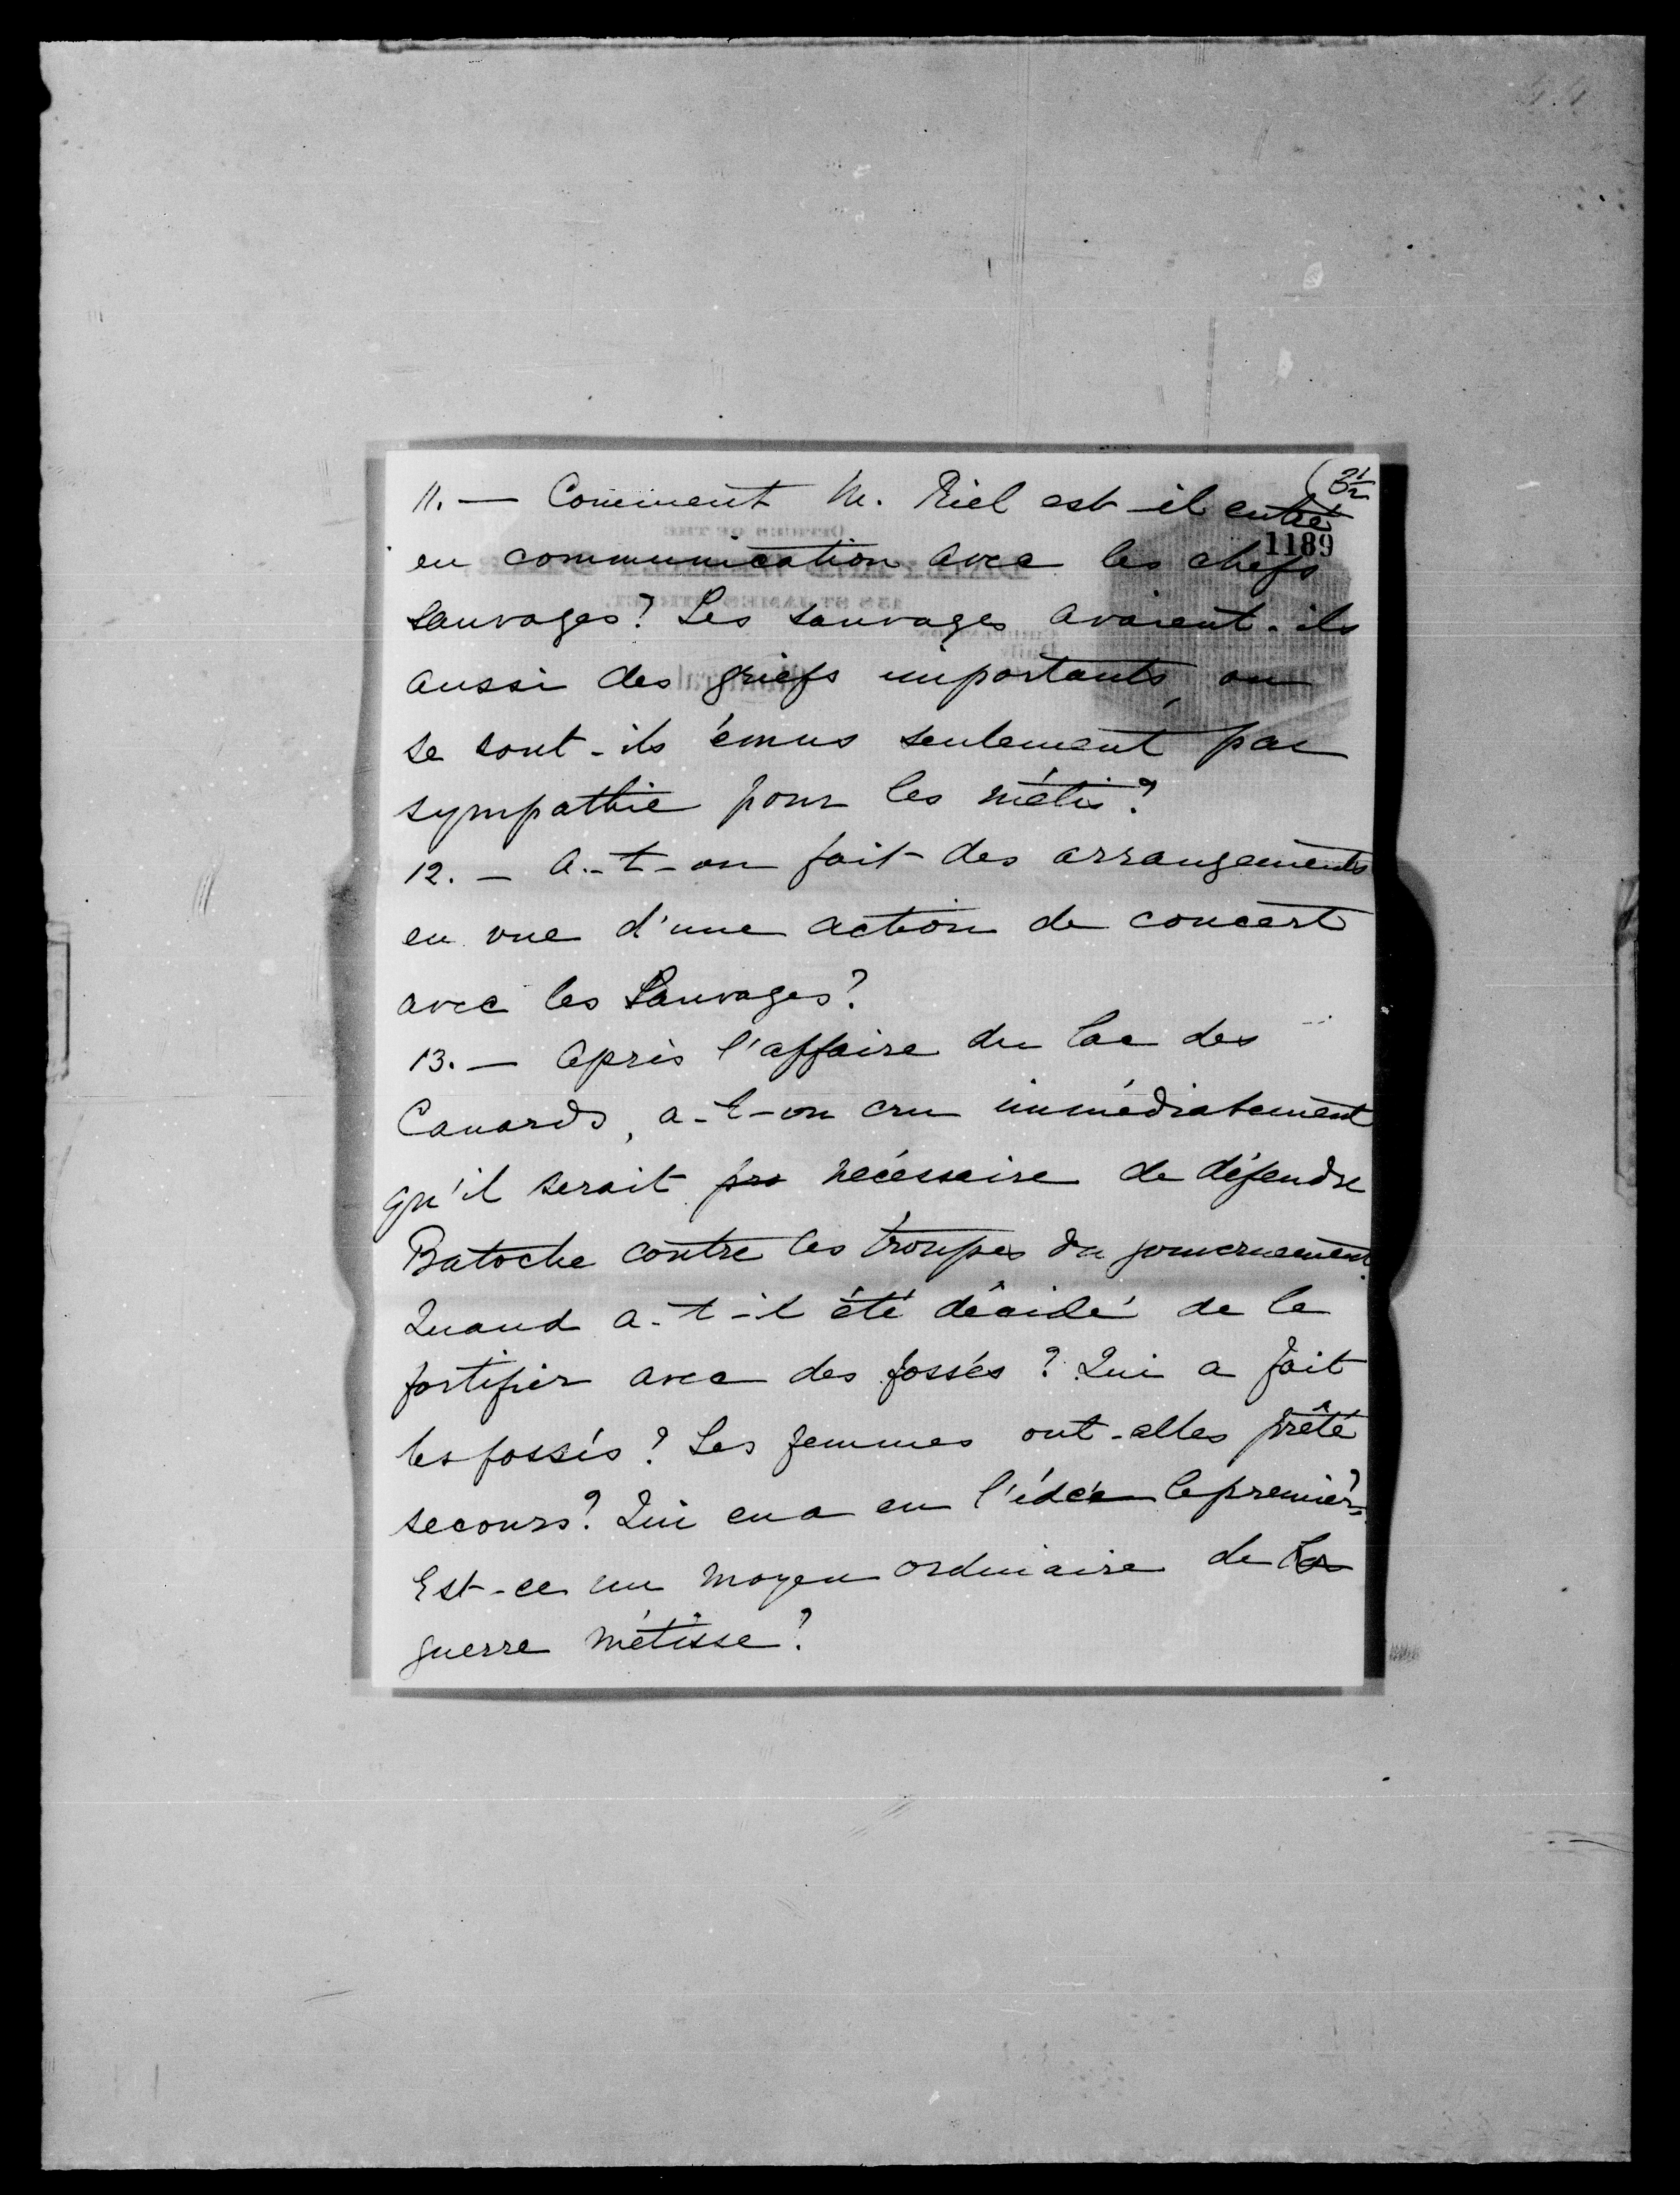 11. — Comment M. Riel est-il entré
1189
en communication avec les chefs
sauvages? Les sauvages avaient-ils
aussi des griefs importants, ou
se sont-ils émus seulement par
sympathie pour les métis?
12. — A-t-on fait des arrangements
en vue d'une action de concert
avec les Sauvages?
13. — Après l'affaire du lac des
Canards, a-t-on cru immédiatement
qu'il serait pro nécessaire de défendre
Batoche contre les troupes du gouvernement.
Quand a-t-il été décidé de le
fortifier avec des fossés? Qui a fait
les fossés? Les femmes ont-elles prêté
secours? Qui en a eu l'idée le premier?
Est-ce un moyen ordinaire de la
guerre métisse?